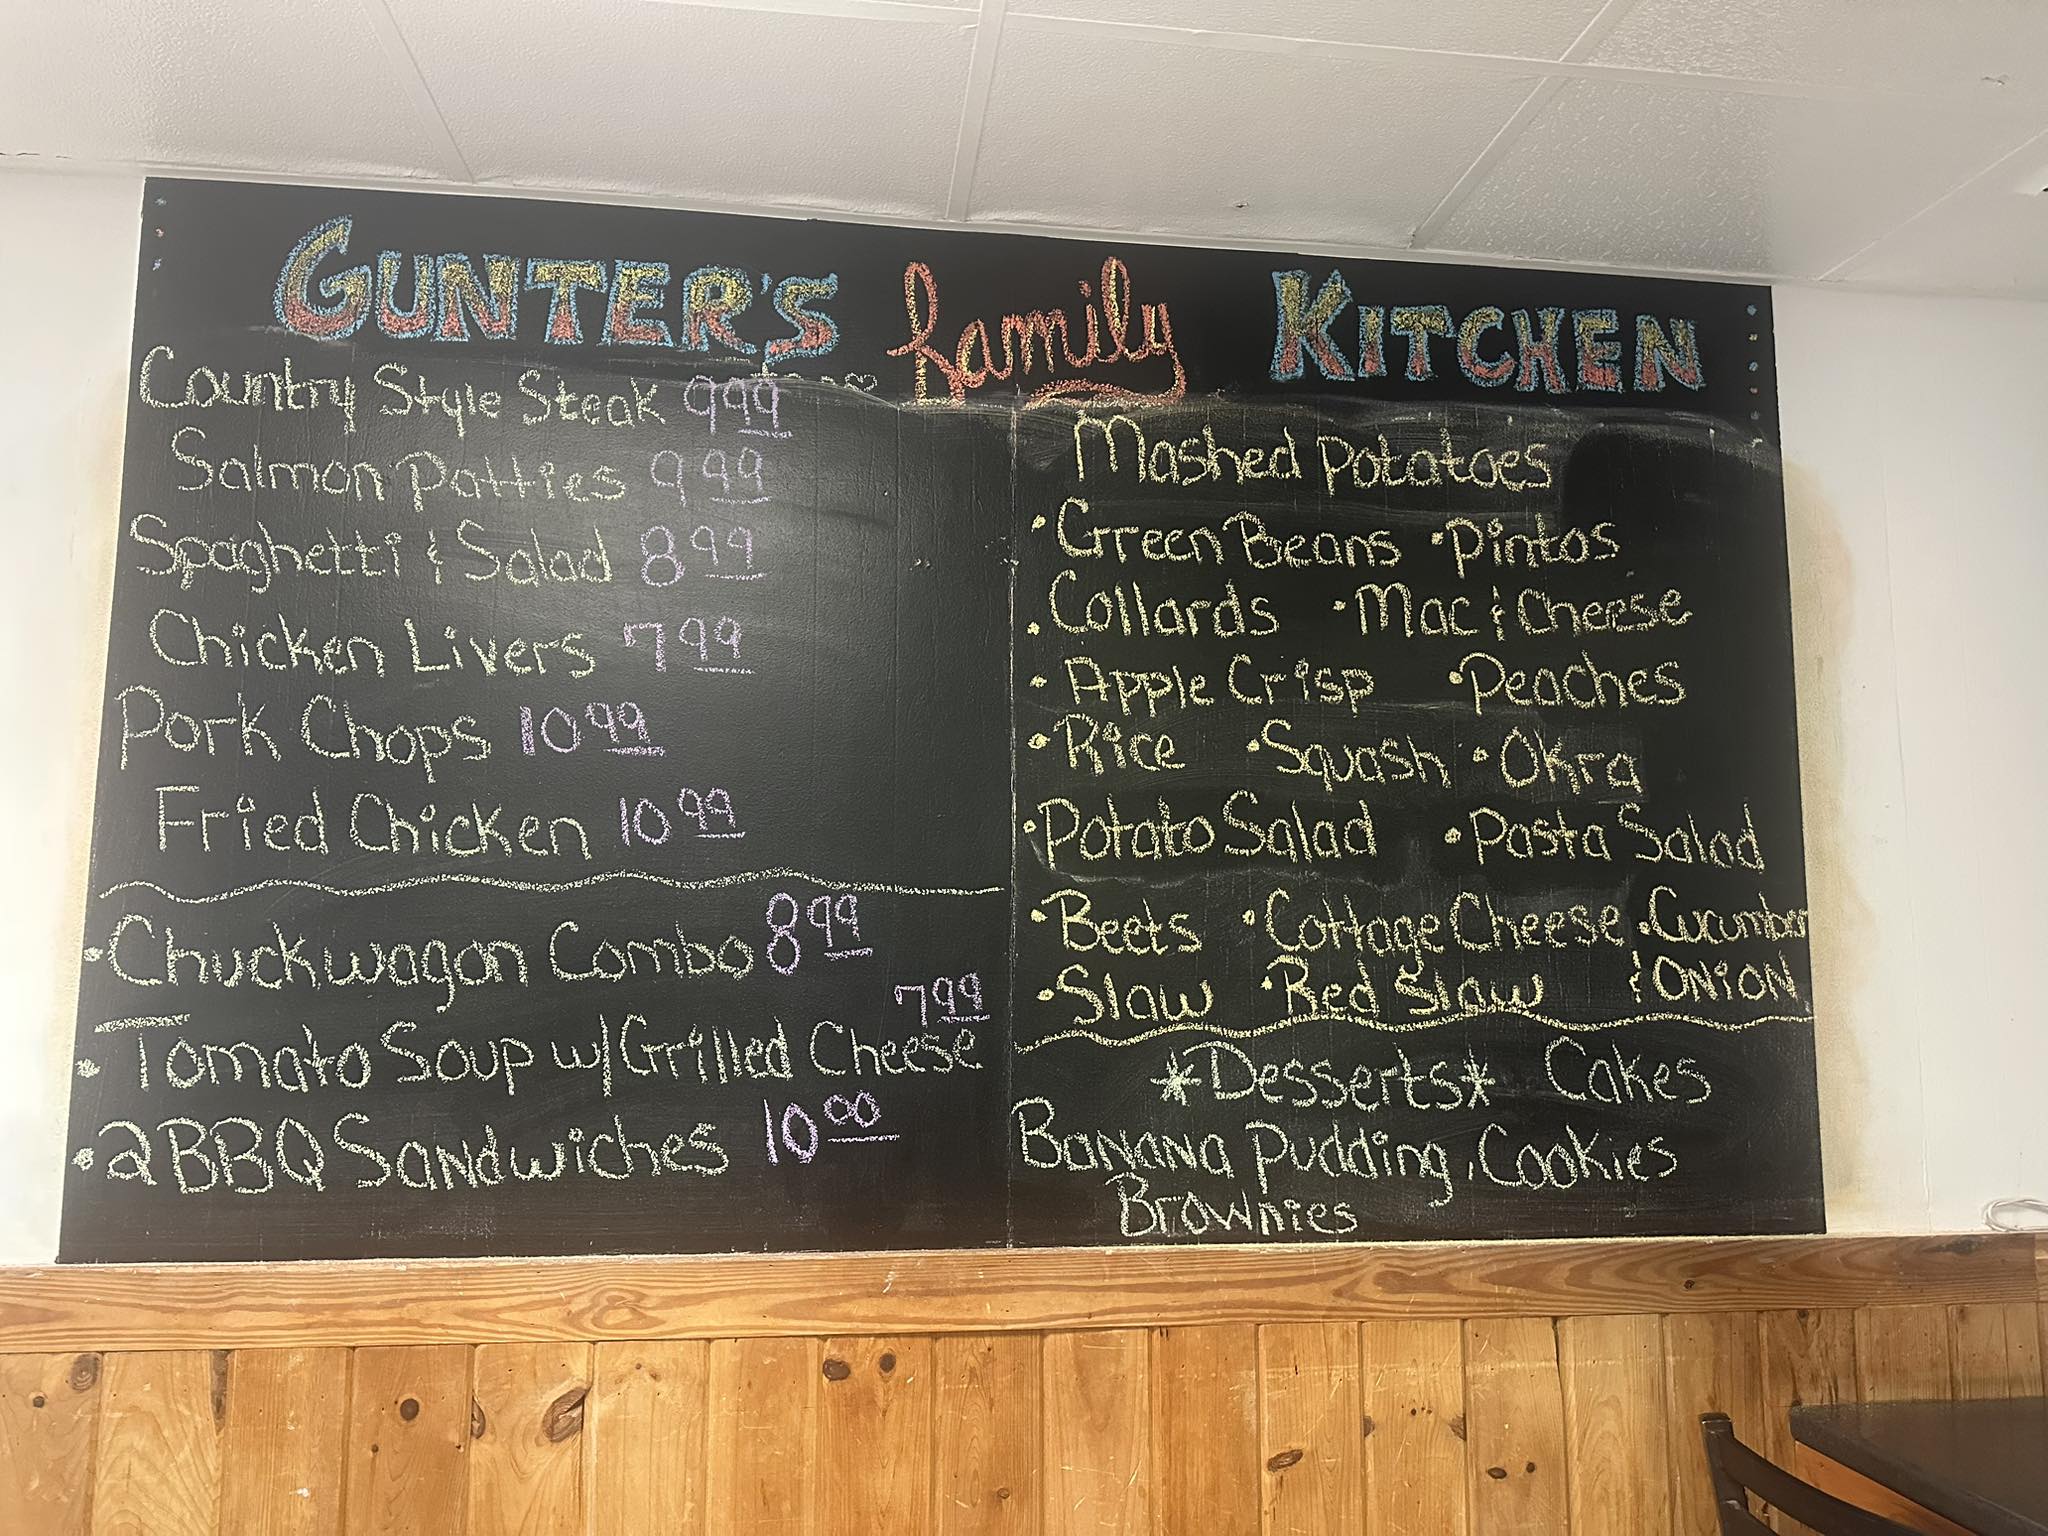 GUNTER'S family KITCHEN
Country Style Steak 9.99
Salmon Patties 9.99
Spaghetti & Salad 8.99
Chicken Livers 7.99
Pork Chops 10.99
Fried Chicken 10.99
• Chuckwagon Combo 8.99
7.99
• Tomato Soup w/Grilled Cheese
• 2 BBQ Sandwiches 10.00
Mashed Potatoes
• Green Beans • Pintos
• Collards • Mac & Cheese
• Apple Crisp • Peaches
• Rice • Squash • Okra
• Potato Salad • Pasta Salad
• Beets • Cottage Cheese • Cucumber
• Slaw • Red Slaw & ONION
*Desserts* Cakes
BANANA Pudding, Cookies
Brownies